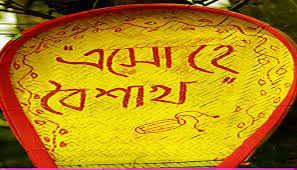 "এসো হে
বৈশাখ"